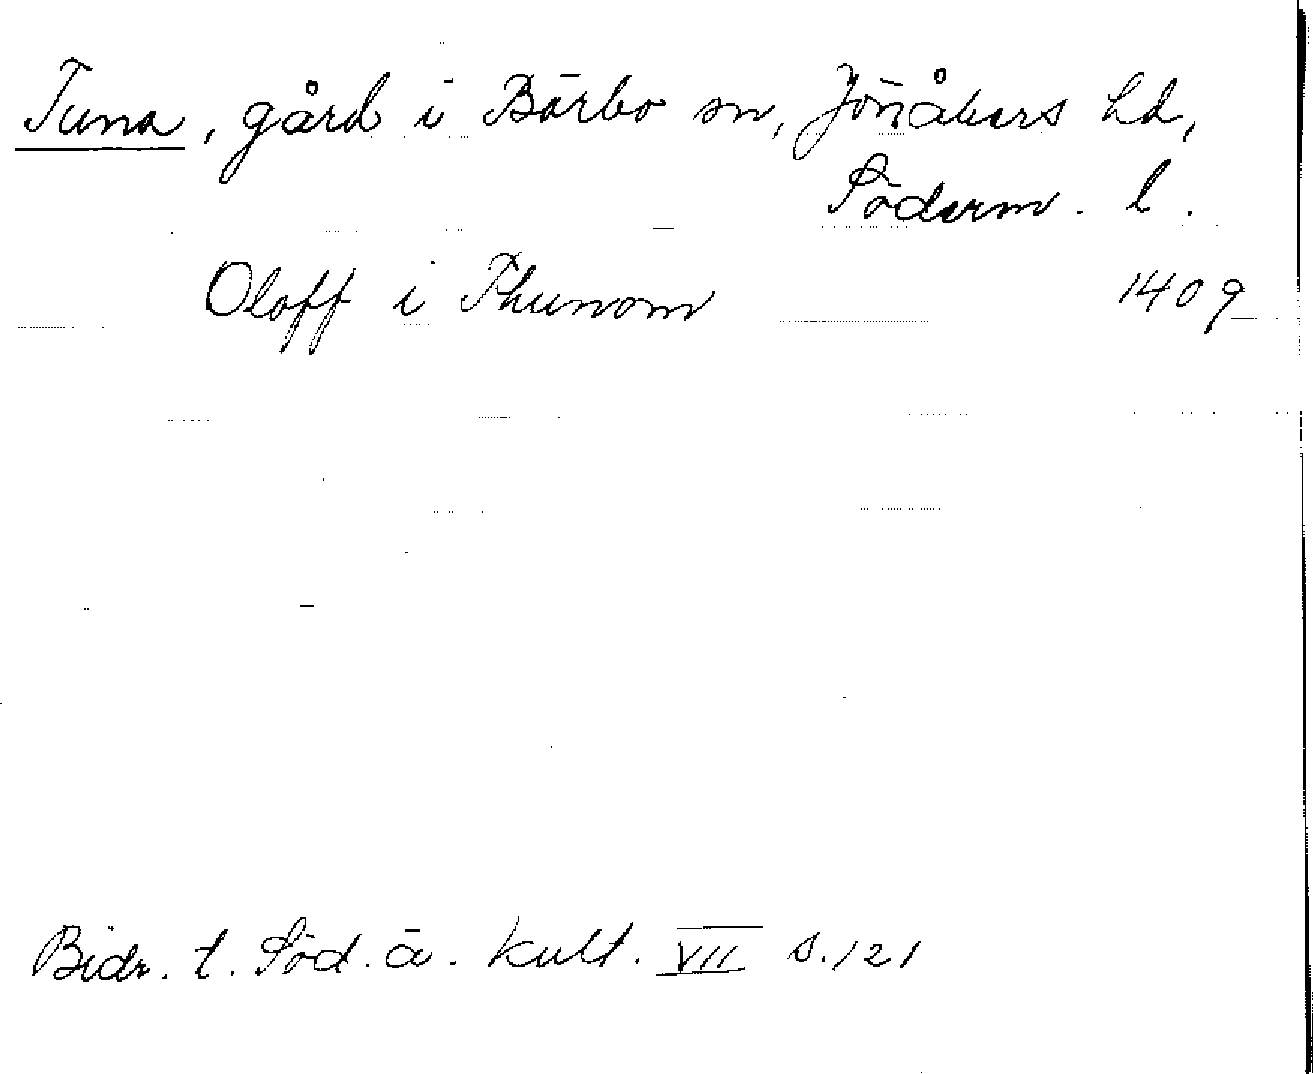 Tuna, gård i Bärbo sn, Jönåkers hd,
Söderm. l.
Oloff i Thunom 1409
Bidr. t. Söd. ä. kult. VII s. 121